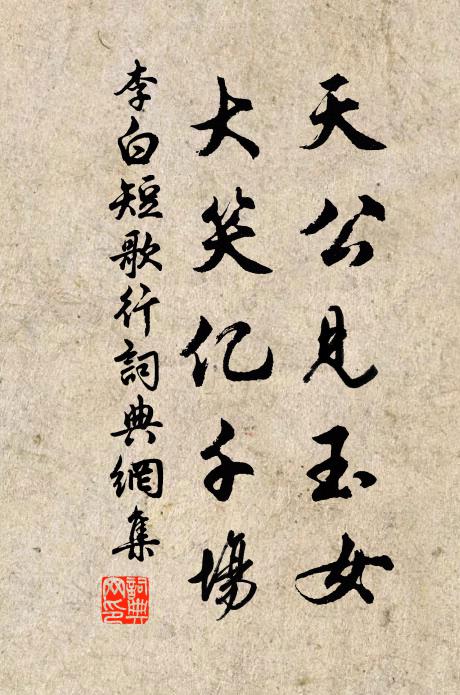 天公见玉女
大笑亿千場
李白短歌行詞典網集
詞典